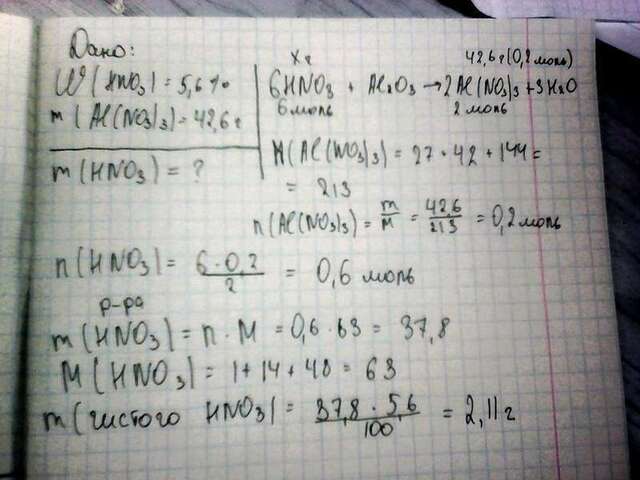 Дано:
W(HNO₃) = 5,6 %
m(Al(NO₃)₃) = 42,6 г
m(HNO₃) = ?
X г 42,6 г (0,2 моль)
6HNO₃ + Al₂O₃ → 2Al(NO₃)₃ + 3H₂O
6 моль 2 моль
M(Al(NO₃)₃) = 27 + 42 + 144 =
= 213
n(Al(NO₃)₃) = m/M = 42,6/213 = 0,2 моль
n(HNO₃) = 6 · 0,2 / 2 = 0,6 моль
р-ра
m(HNO₃) = n · M = 0,6 · 63 = 37,8
M(HNO₃) = 1 + 14 + 48 = 63
m(чистого HNO₃) = 37,8 · 5,6 / 100 = 2,11 г